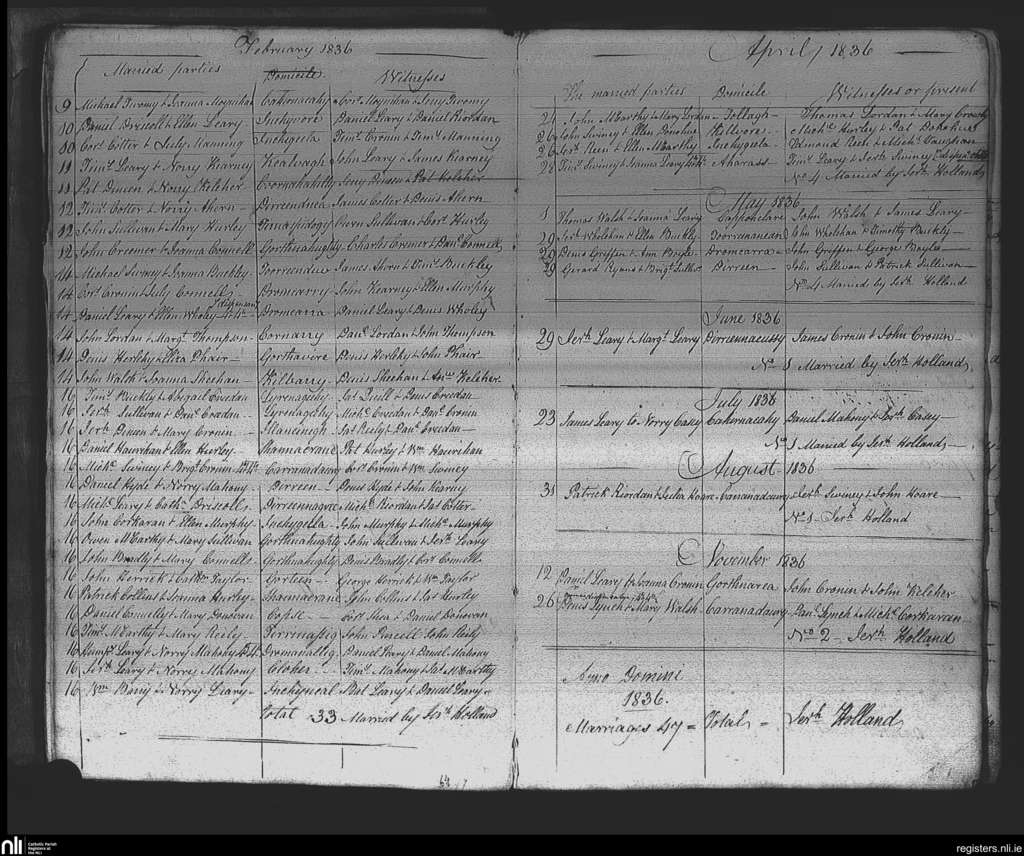 February 1836
Married parties Domicile Witnesses
9 Michael Twomy & Joanna Moynihan Cahernacahy Corn. Moynihan & Jeny Twomy
10 Daniel Driscoll & Ellen Leary Inchymore Daniel Leary & Daniel Riordan
10 Corn. Cotter & July Manning Inchigeela Timy. Cronin & Timy. Manning
11 Timy. Leary & Norry Kearney Kealvagh John Leary & James Kearney
11 Pat Dineen & Norry Kelcher Pat Kelcher
12 Timy. Cotter & Norry Ahern Derreenduea James Cotter & Denis Ahern
12 John Sullivan & Mary Hurley Owen Sullivan & Cors. Hurley
12 John Creemer & Joanna Connell Gorthnahughty Charles Creemer & Danl. Connell
14 Michael Swiney & Joanna Buckley James Ahern & Timy. Buckley
14 Cors. Cronin & July Connell Dromcarry John Kearney & Ellen Murphy
14 Daniel Leary & Ellen Wholey Dromcarra Daniel Leary & Denis Wholey
14 John Lordan & Margt. Thompson Cornarry Danl. Lordan & John Thompson
14 Denis Herlihy & Ellica Phair Gorthavere Denis Herlihy & John Phair
14 John Walsh & Joanna Sheehan Kilbarry Denis Sheehan & Kelcher
16 Timy. Buckly & Abigail Creedan Gyrenagehy Jas. & Denis Creedan
16 Jerh. Sullivan & Creedan Gyrenageehy Michl. Creedan & Danl. Cronin
16 Jerh. Dineen & Mary Cronin Jas. Reily & Danl. Creedan
16 Daniel Hawrehan & Ellen Hurley Shannacrane Pat Hurley & Wm. Hawrehan
16 Michl. Swiney & Brigt. Cronin Carranadawry Cors. Cronin & Wm. Swiney
16 Daniel Hyde & Norry Mahony Derreen Denis Hyde & John Kearny
16 Michl. Leary & Cathe. Driscoll Derreennagree Michl. Riordan & Jas. Cotter
16 John Corkaran & Ellen Murphy Inchygeela John Murphy & Michl. Murphy
16 Owen McCarthy & Mary Sullivan Gorthnahughty John Sullivan & Jerh. Leary
16 John Bradly & Mary Connell Gorthnahughty Denis Bradly & Cors. Connell
16 John Herrick & Cathe. Taylor Gorteen George Herrick & Wm. Taylor
16 Patrick Collins & Joanna Hurley Shannacrane John Collins & Hurley
16 Daniel Connelly & Mary Donovan Copse Shea & Daniel Donovan
16 Timy. McCarthy & Mary Reily John Pursell John Reily
16 Leary & Norry Mahony Dromanallig Daniel Leary & Daniel Mahony
16 Jerh. Leary & Norry Mahony Timy. Mahony & Jas. McCarthy
16 Wm. Barry & Norry Leary Inchyneal Bat Leary & Daniel Leary
Total 33 Married by Jerh. Holland
April 1836
The married parties Domicile Witnesses or present
24 John McCarthy & Mary Lordan Tollagh Thomas Lordan & Mary Crowly
26 John Swiney & Ellen Donohue Kilmore Michl. Hurley & Pat Donohue
26 & Ellen McCarthy Inchygeela Edmond & Michl. Vaughan
28 Timy. Swiney & Joanna Leary Aharass Timy. Leary & Jerh. Swiney
No. 4 Married by Jerh. Holland
May 1836
1 Thomas Walsh & Joanna Leary Cappaclare John Walsh & James Leary
29 Jerh. Whelehan & Ellen Buckly John Whelehan & Timothy Buckly
29 Denis Griffin & Ann Boyle Dromcarra John Griffin & George Boyle
29 Gerard Ryan & Brigt. Derreen John Sullivan & Patrick Sullivan
No. 4 Married by Jerh. Holland
June 1836
29 Jerh. Leary & Margt. Leary Derreenacussy James Cronin & John Cronin
No. 1 Married by Jerh. Holland
July 1836
23 James Leary to Norry Casey Cahernacahy Daniel Mahony & Jerh. Casey
No. 1 Married by Jerh. Holland
August 1836
31 Patrick Riordan & Hoare Carranadawry Jerh. Swiney & John Hoare
No. 1 Jerh. Holland
November 1836
12 Daniel Leary & Joanna Cronin Gorthnarea John Cronin & John Kelcher
26 Denis Lynch & Mary Walsh Carranadawry Danl. Lynch & Michl. Corkaran
No. 2 Jerh. Holland
Anno Domini
1836.
Marriages 47 = Total = Jerh. Holland
nli Catholic Parish
Registers at
the NLI
registers.nli.ie